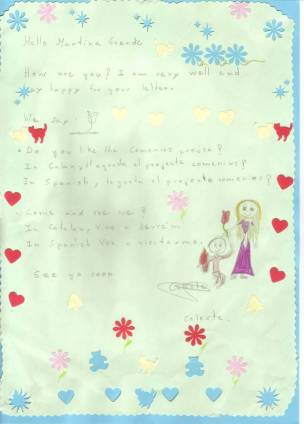 Hello Martina Grande
How are you? I am very well and
very happy for your letter.
We say
Do you like the Comenius project?
In Catalan, t'agrada el projecte comenius?
In Spanish, te gusta el projecte comenius?
Come and see me?
In Catalan, Vine a
In Spanish Ven a visitarme.
See ya soon
Celeste
Celeste.